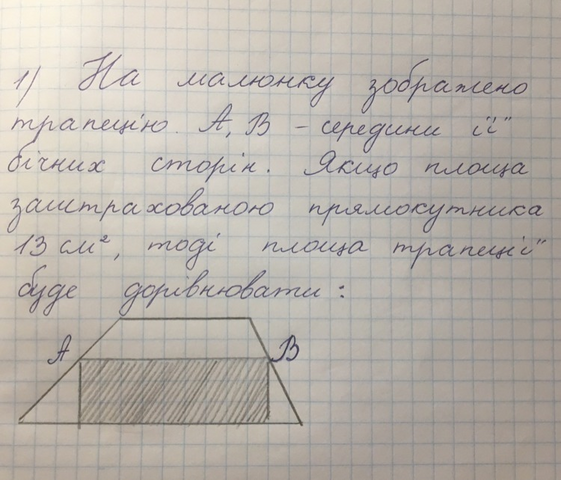 1) На малюнку зображено
трапецію. А, В - середини її
бічних сторін. Якщо площа
заштрахованою прямокутника
13 см², тоді площа трапеції
буде дорівнювати:
А В